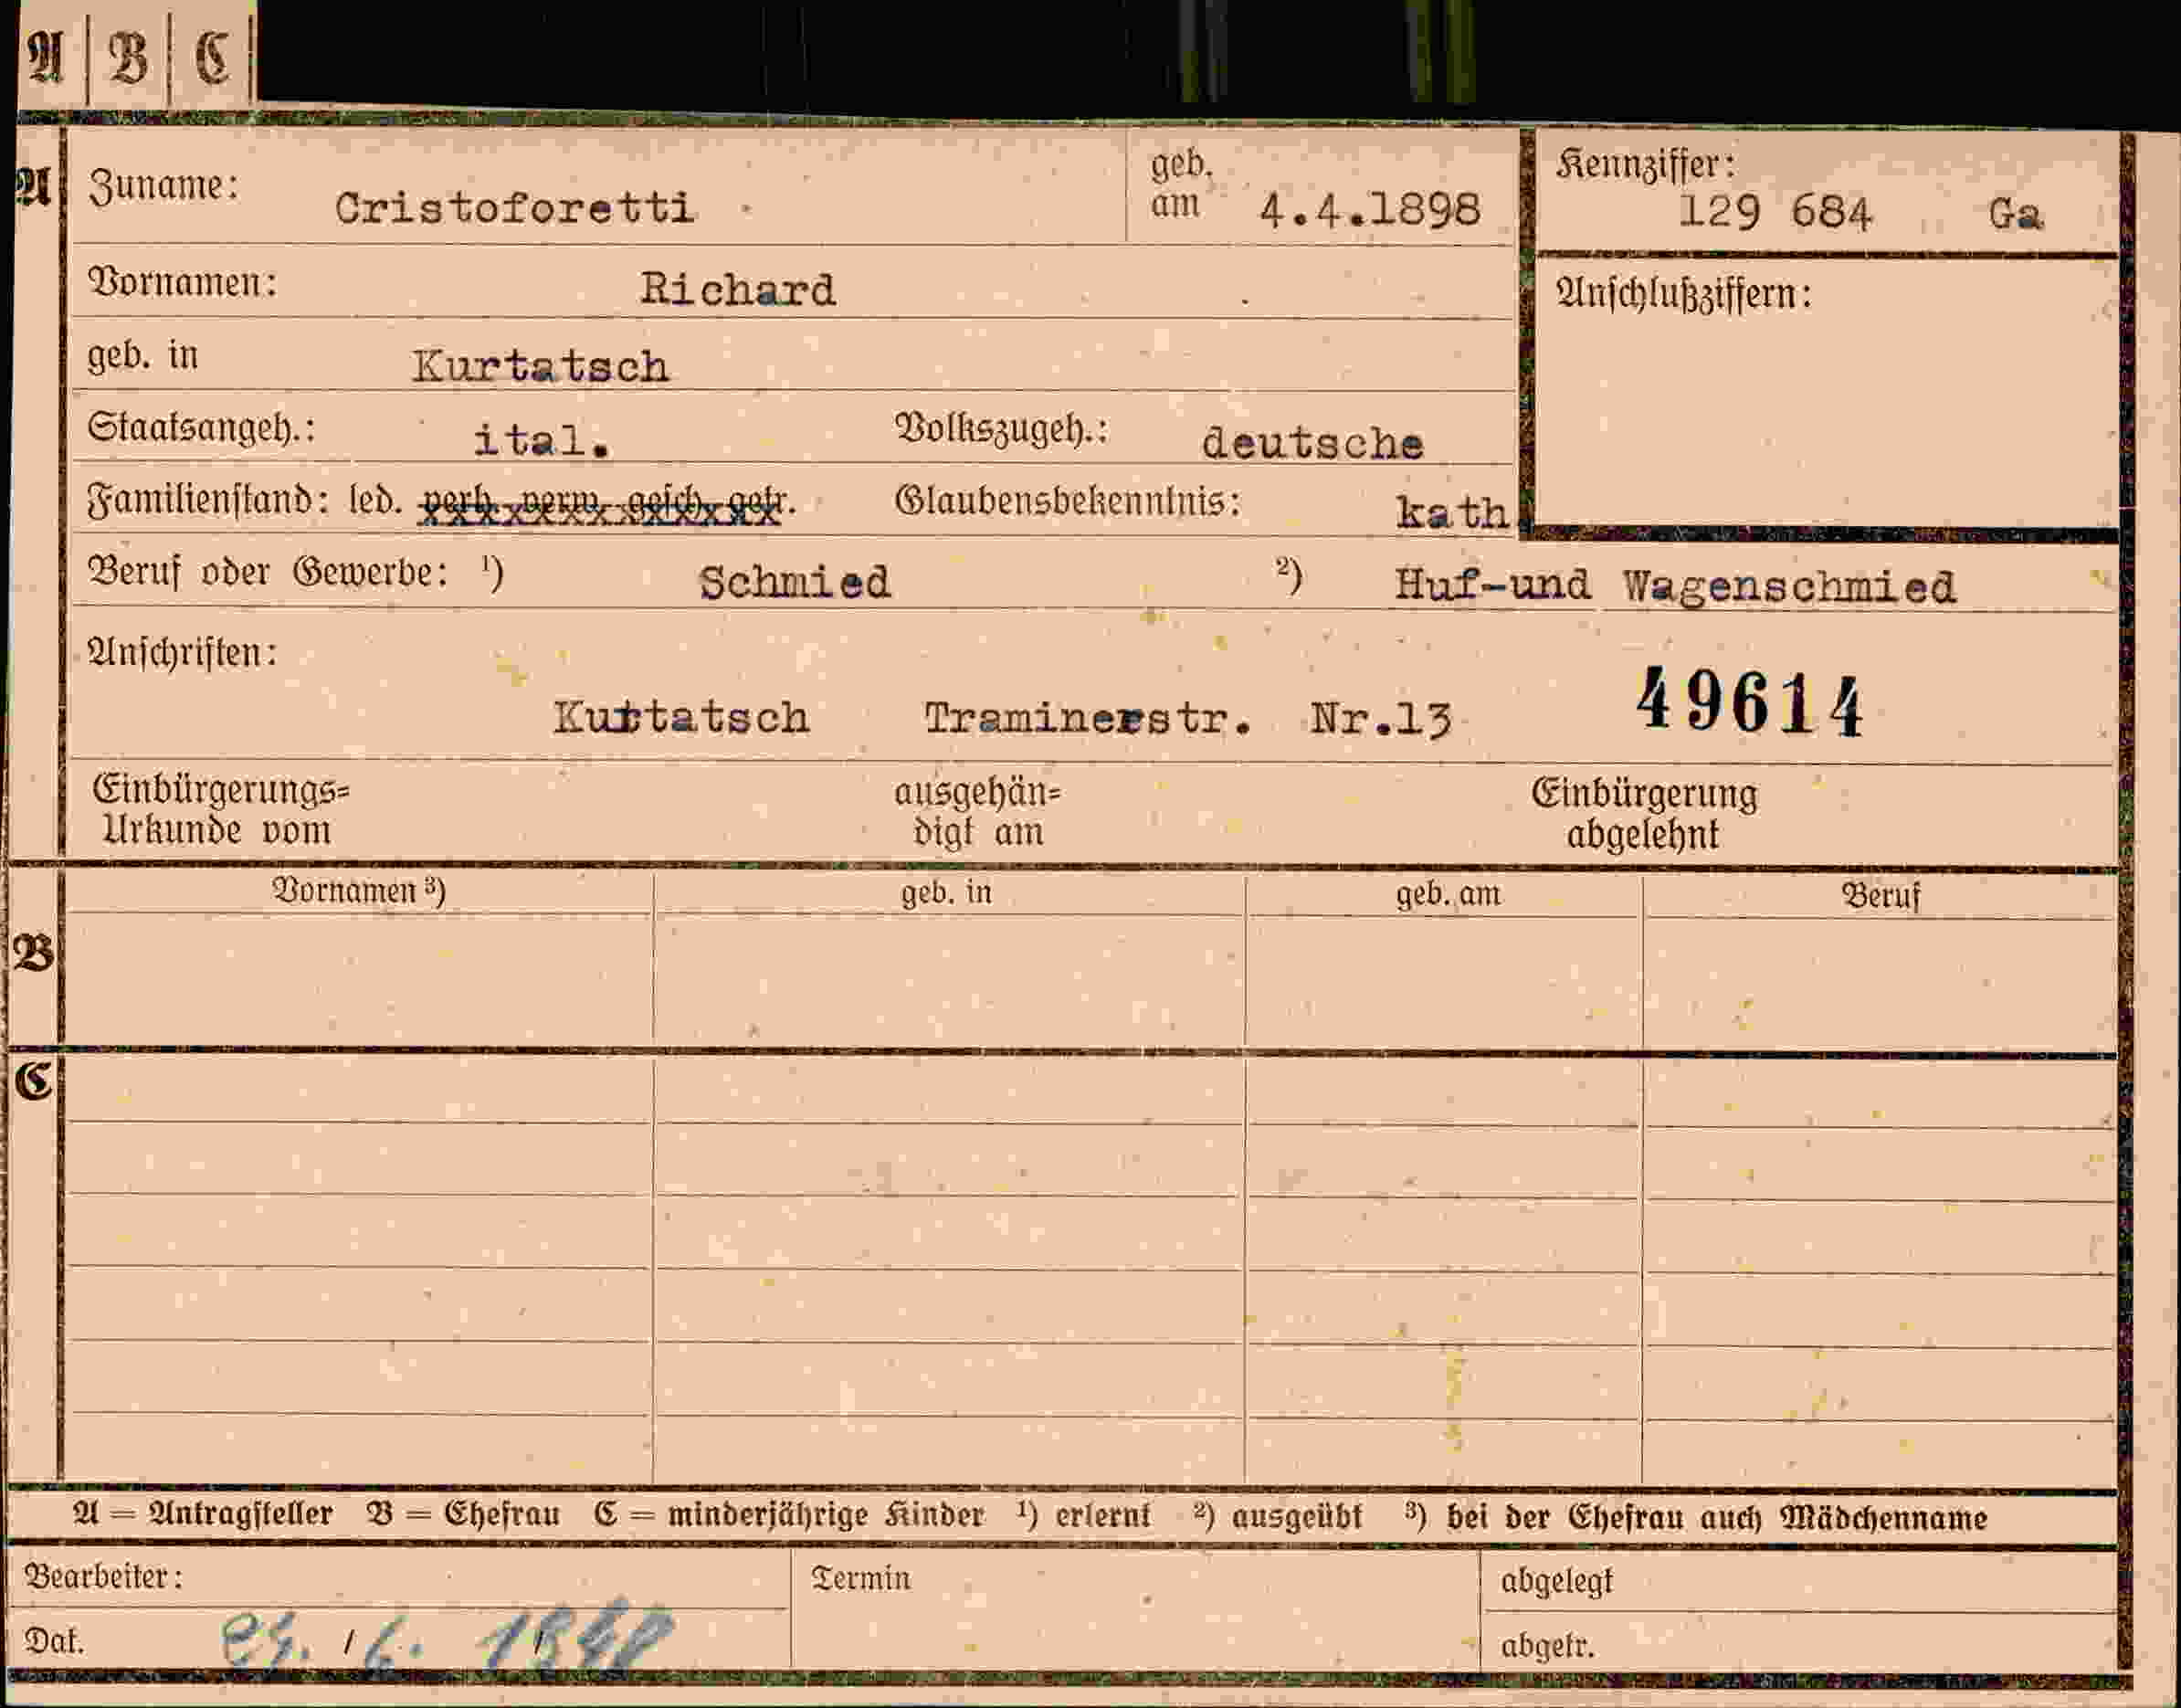 A B C
A Zuname: Cristoforetti geb. am 4.4.1898 Kennziffer: 129 684 Ga
Vornamen: Richard Anschlußziffern:
geb. in Kurtatsch
Staatsangeh.: ital. Volkszugeh.: deutsche
Familienstand: led. verh. verw. gesch. getr. Glaubensbekenntnis: kath
Beruf oder Gewerbe: ¹) Schmied ²) Huf-und Wagenschmied
Anschriften:
Kurtatsch Traminerstr. Nr.13 49614
Einbürgerungs= ausgehän= Einbürgerung
Urkunde vom digt am abgelehnt
Vornamen ³) geb. in geb. am Beruf
B
C
A = Antragsteller B = Ehefrau C = minderjährige Kinder ¹) erlernt ²) ausgeübt ³) bei der Ehefrau auch Mädchenname
Bearbeiter: Termin abgelegt
Dat. abgetr.